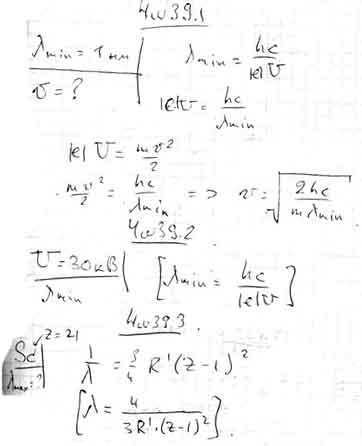 4ю39.1
λmin = 1 нм
λmin = hc / |e|U
v = ?
|e|U = hc / λmin
|e|U = mv² / 2
mv² / 2 = hc / λmin => v = √(2hc / mλmin)
4ю39.2
U = 30 кВ
λmin
[λmin = hc / |e|U]
4ю39.3
Sc z = 21
λmax = ?
1/λ = 3/4 R'(z-1)²
[λ = 4 / 3R'·(z-1)²].